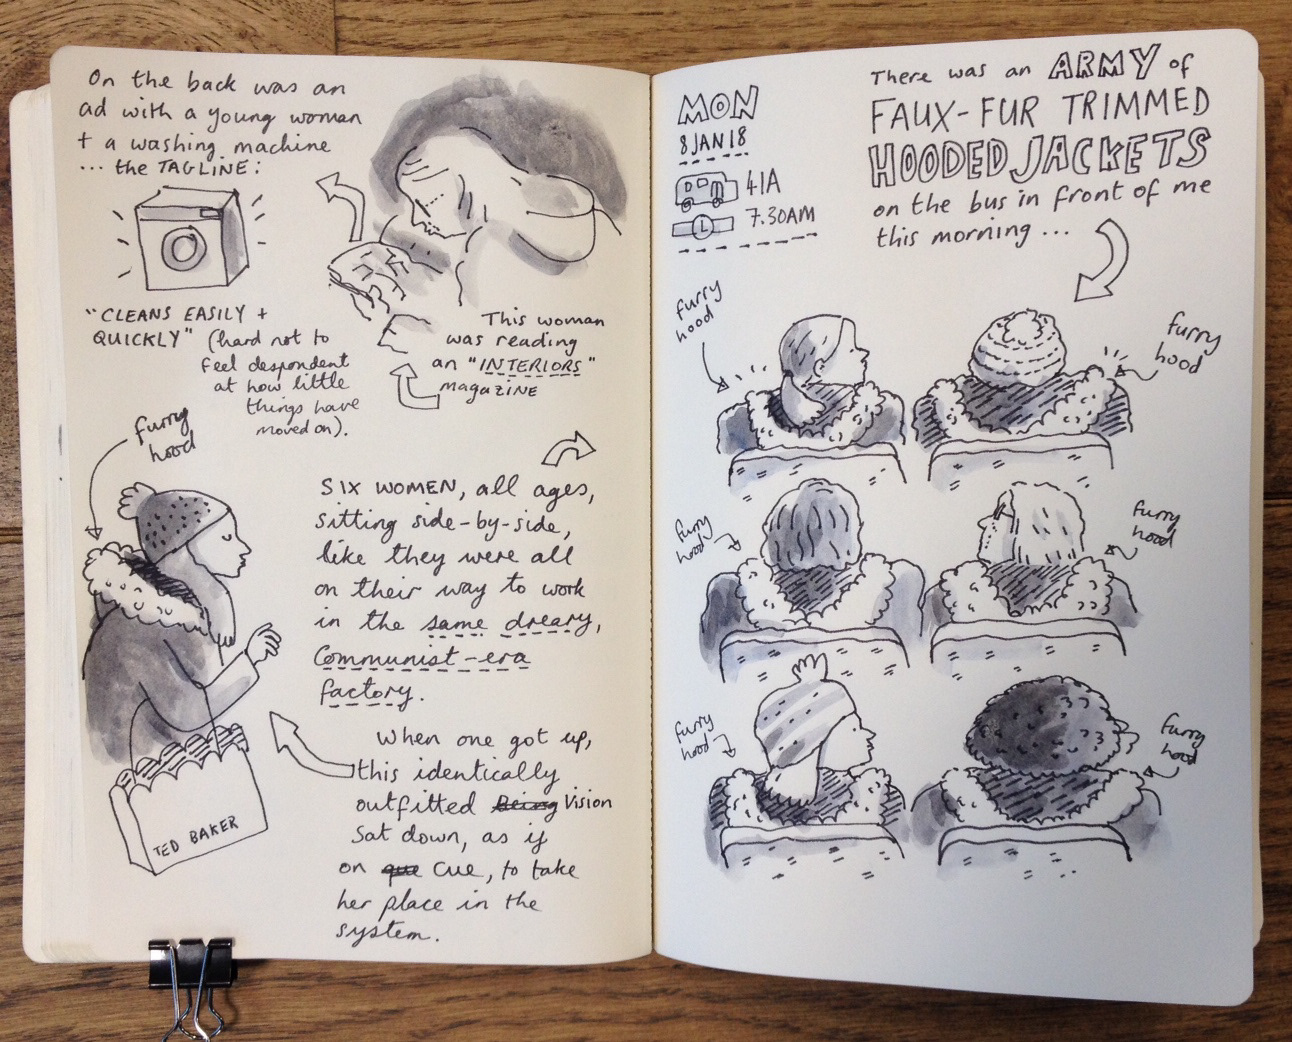 On the back was an
ad with a young woman
+ a washing machine
... the TAGLINE:
"CLEANS EASILY +
QUICKLY" (hard not to
feel despondent
at how little
things have
moved on).
This woman
was reading
an "INTERIORS"
magazine
furry
hood
TED BAKER
SIX WOMEN, all ages,
sitting side-by-side,
like they were all
on their way to work
in the same dreary,
Communist-era
factory.
When one got up,
this identically
outfitted Being Vision
sat down, as if
on que cue, to take
her place in the
system.
MON
8 JAN 18
41A
7.30AM
There was an ARMY of
FAUX-FUR TRIMMED
HOODED JACKETS
on the bus in front of me
this morning ...
furry
hood
furry
hood
furry
hood
furry
hood
furry
hood
furry
hood